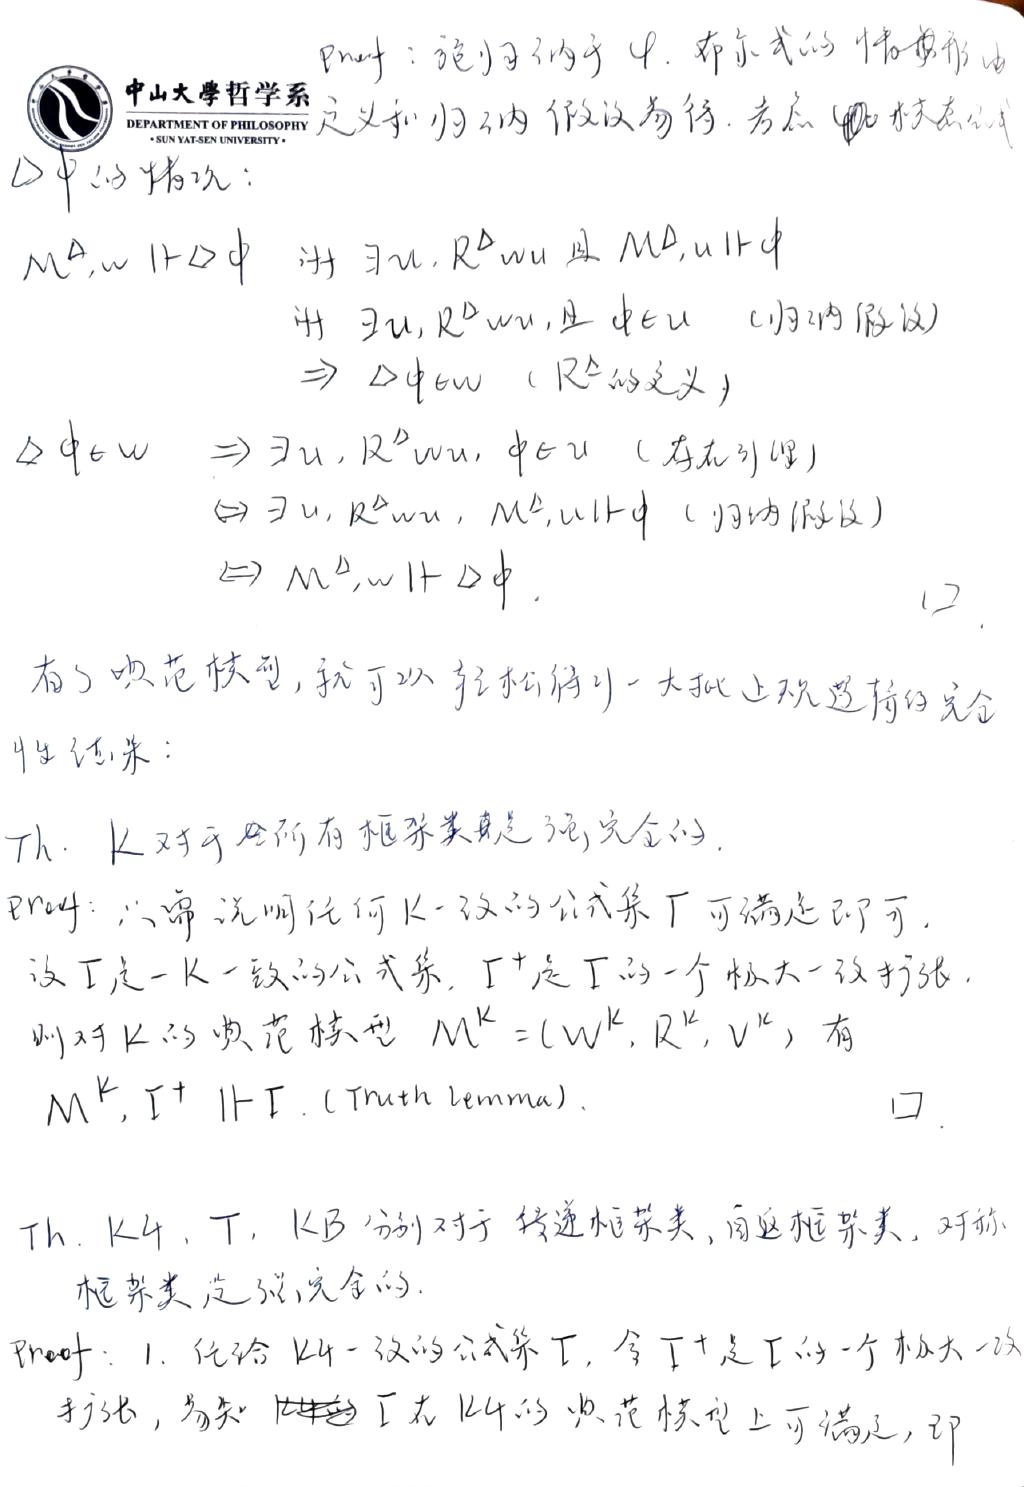 Proof：施归纳于φ. 布尔式的情形由
中山大學哲学系
DEPARTMENT OF PHILOSOPHY
·SUN YAT-SEN UNIVERSITY·
定义和归纳假设易得. 考虑模态公式
△φ的情况：
M^△, w ⊩ △φ iff ∃u, R^△wu 且 M^△, u ⊩ φ
iff ∃u, R^△wu, 且 φ∈u （归纳假设）
⇒ △φ∈w （R^△的定义）
△φ∈w ⇒ ∃u, R^△wu, φ∈u （存在引理）
⇔ ∃u, R^△wu, M^△, u ⊩ φ （归纳假设）
⇔ M^△, w ⊩ △φ. □.
有了典范模型, 就可以轻松得到一大批正规逻辑的完全
性结果：
Th. K对于所有框架类是强完全的.
Proof: 只需说明任何K一致的公式集Γ可满足即可.
设Γ是一K一致的公式集, Γ⁺是Γ的一个极大一致扩张.
则对K的典范模型 M^K = (W^K, R^K, V^K) 有
M^K, Γ⁺ ⊩ Γ. (Truth Lemma). □.
Th. K4, T, KB 分别对于传递框架类, 自返框架类, 对称
框架类是强完全的.
Proof: 1. 任给K4一致的公式集Γ, 令Γ⁺是Γ的一个极大一致
扩张, 易知 Γ在K4的典范模型上可满足, 即